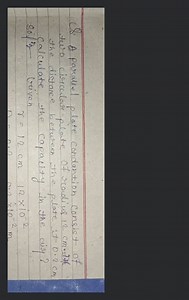 Q8. A parallel plate condenser consist of
two circular plate of radius 12 cm. If
the distance between the plate is 0.2 cm
calculate the capacity in the air?
Given
r = 12 cm 12 × 10⁻²